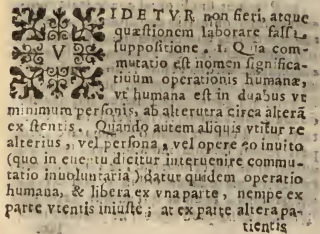 VIDETVR non fieri, atque
quæstionem laborare falsi
suppositione. 1. Quia com-
mutatio est nomen significa-
tiuum operationis humanæ,
vt humana est in duabus vt
minimum personis, ab alterutra circa alterã
ex stentis. Quando autem aliquis vtitur re
alterius, vel persona, vel opere eo inuito
(quo in euentu dicitur interuenire commu-
tatio inuoluntaria) datur quidem operatio
humana, & libera ex vna parte, nempe ex
parte vtentis iniuste; at ex parte altera pa-
tientis